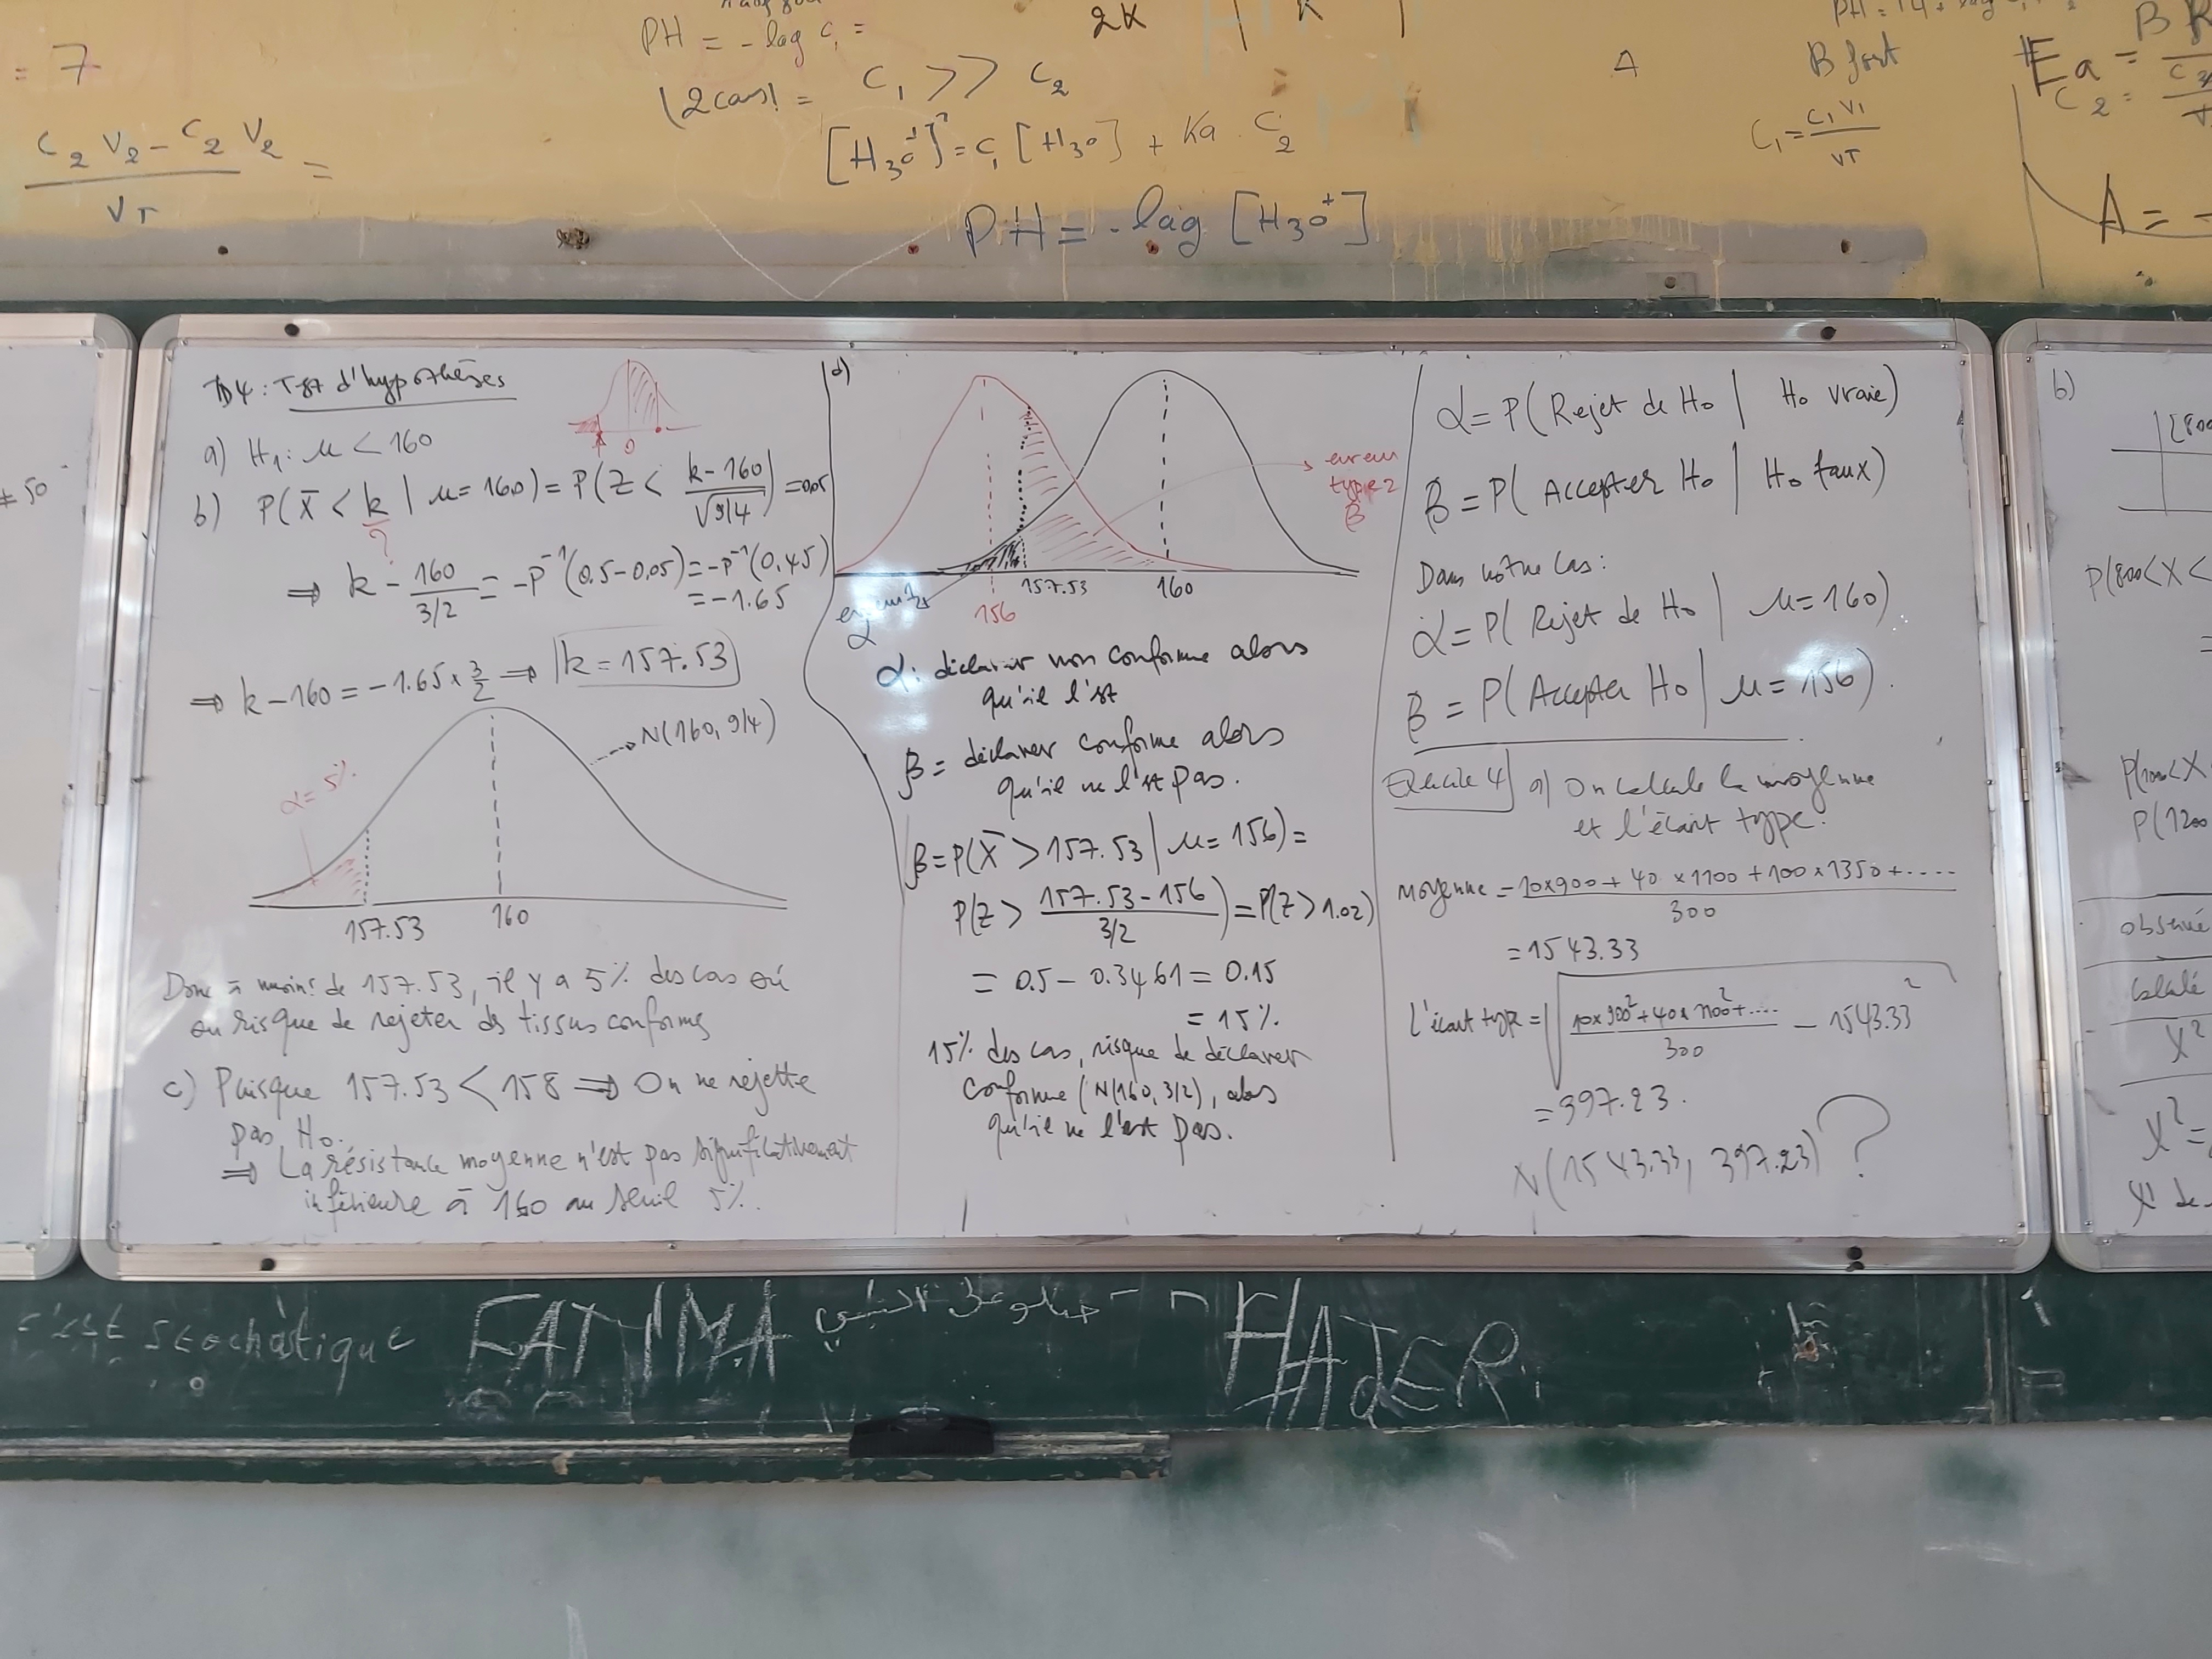 PH = - log c₁ =
2K
K
= 7
(2cas) = C₁ >> C₂
[H₃O⁺]² = C₁ [H₃O] + Ka . C₂
PH = - log [H₃O⁺]
C₂ V₂ - C₂ V₂ =
VT
A
B fort
C₁ = C₁ V₁
VT
Ea =
C₂ =
A = -
≠ 50
TD4 : Test d'hypothèses
a) H₁ : μ < 160
0
b) P(X̄ < k | μ = 160) = P(Z < (k - 160)/√9/4) = 0.05
?
⇒ k - 160/(3/2) = -P⁻¹(0.5 - 0.05) = -P⁻¹(0,45)
= -1.65
⇒ k - 160 = -1.65 × 3/2 ⇒ k = 157.53
N(160, 9/4)
α = 5%
157.53
160
Donc à moins de 157.53, il y a 5% des cas où
on risque de rejeter des tissus conformes
c) Puisque 157.53 < 158 ⇒ On ne rejette
pas H₀.
⇒ La résistance moyenne n'est pas significativement
inférieure à 160 au seuil 5%.
d)
erreur
type 2
β
157.53
160
156
α
α : déclarer non conforme alors
qu'il l'est
β = déclarer conforme alors
qu'il ne l'est pas.
β = P(X̄ > 157.53 | μ = 156) =
P(Z > (157.53 - 156)/(3/2)) = P(Z > 1.02)
= 0.5 - 0.3461 = 0.15
= 15%
15% des cas, risque de déclarer
conforme (N(160, 3/2), alors
qu'il ne l'est pas.
α = P(Rejet de H₀ | H₀ vraie)
β = P(Accepter H₀ | H₀ faux)
Dans notre cas :
α = P(Rejet de H₀ | μ = 160)
β = P(Accepter H₀ | μ = 156).
Exercice 4 a) On calcule la moyenne
et l'écart type.
moyenne = 10×900 + 40 × 1100 + 100 × 1350 + ....
300
= 1543.33
L'écart type = √(10×900² + 40×1100² + ..../300 - 1543.33²)
= 397.23.
N(1543.33, 397.23) ?
b)
[800
P(800<X<
=
P(1200
observé
calculé
X²
X² =
X² de
c'est stochastique
FATIMA
HAJER